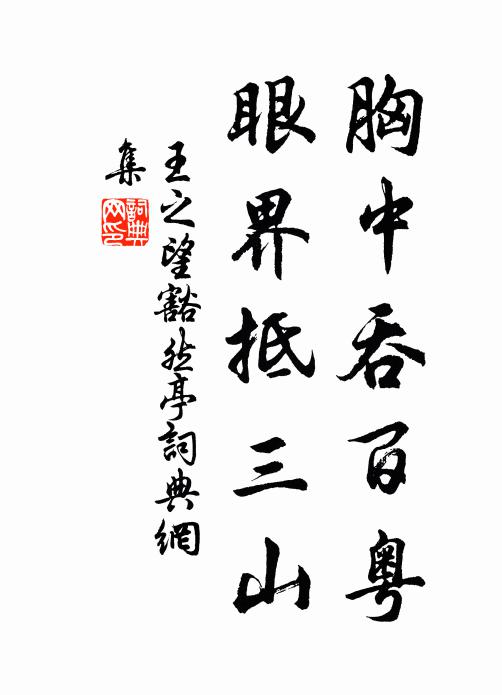 胸中吞百粤
眼界抵三山
王之望豁然亭詞典網
集
詞典
网印